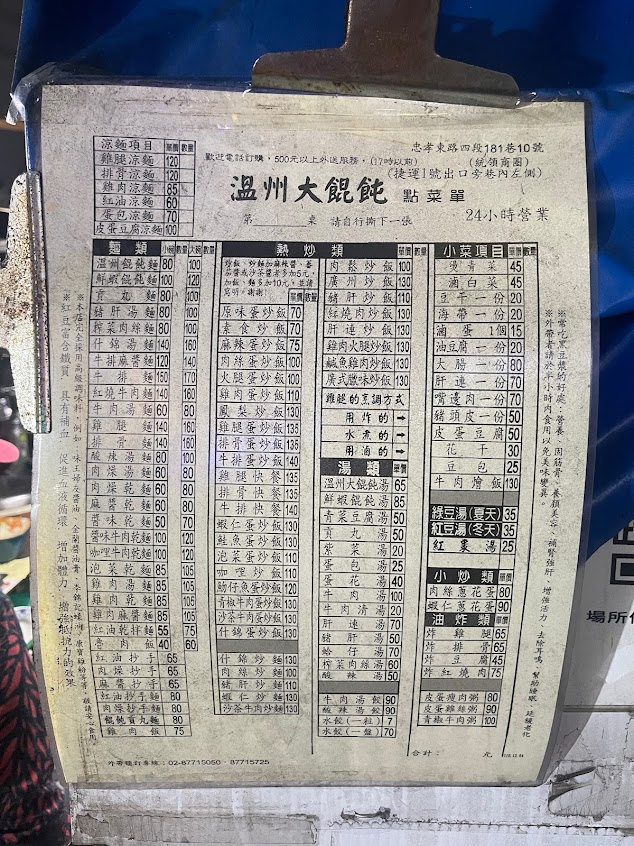 忠孝東路四段181巷10號
歡迎電話訂購，500元以上外送服務，(17時以前) (統領商圈)
(捷運1號出口旁巷內左側)
溫州大餛飩 點菜單
第 桌 請自行撕下一張 24小時營業
涼麵項目 單價 數量
雞腿涼麵 120
排骨涼麵 120
雞肉涼麵 85
紅油涼麵 60
蛋包涼麵 70
皮蛋豆腐涼麵 100
麵類 小碗 數量 大碗 數量
溫州餛飩麵 80 100
鮮蝦餛飩麵 100 120
貢丸麵 80 100
豬肝湯麵 80 100
榨菜肉絲麵 80 100
什錦湯麵 120 140
牛排麻醬麵 120 140
牛排麵 150 170
紅燒牛肉麵 140 160
牛肉湯麵 60 80
雞腿麵 140 160
排骨麵 140 160
酸辣湯麵 80 100
肉燥湯麵 60 80
肉燥乾麵 60 80
麻醬乾麵 50 70
醬味乾麵 50 70
醬味牛肉乾麵 100 120
咖哩牛肉乾麵 100 120
泡菜乾麵 85 105
雞肉湯麵 85 105
雞肉乾麵 85 105
雞肉麻醬麵 85 105
紅油乾拌麵 55 75
魯肉飯 40 60
紅油抄手 65
肉燥抄手 65
麻醬抄手 65
紅油抄手麵 80
肉燥抄手麵 80
餛飩貢丸麵 80
雞肉飯 75
熱炒類 單價 數量
炒飯、炒麵加麻辣醬、番
茄醬或沙茶醬者多加5元，
加飯、麵多加10元，並請
寫明。謝謝！
單價 數量
原味蛋炒飯 70
素食炒飯 70
麻辣蛋炒飯 75
肉絲蛋炒飯 100
火腿蛋炒飯 100
雞肉蛋炒飯 110
鳳梨炒飯 130
雞腿蛋炒飯 135
排骨蛋炒飯 135
牛排蛋炒飯 140
雞腿快餐 135
排骨快餐 135
牛排快餐 140
蝦仁蛋炒飯 130
鮭魚蛋炒飯 130
泡菜蛋炒飯 110
咖哩炒飯 110
魩仔魚蛋炒飯 120
青椒牛肉蛋炒飯 130
沙茶牛肉蛋炒飯 130
什錦蛋炒飯 130
什錦炒麵 130
肉絲炒麵 100
豬肝炒麵 110
蝦仁炒麵 130
沙茶牛肉炒麵 130
肉鬆炒飯 100
廣州炒飯 130
豬肝炒飯 110
紅燒肉炒飯 130
肝連炒飯 130
雞肉火腿炒飯 130
鹹魚雞肉炒飯 130
廣式臘味炒飯 130
雞腿的烹調方式
用炸的→
水煮的→
用滷的→
湯類 單價
溫州大餛飩湯 65
鮮蝦餛飩湯 85
青菜豆腐湯 50
貢丸湯 50
紫菜湯 20
蛋包湯 25
蛋花湯 40
牛肉湯 100
牛肉清湯 20
肝連湯 70
豬肝湯 50
蛤仔湯 70
榨菜肉絲湯 60
酸辣湯 50
牛肉湯餃 90
酸辣湯餃 90
水餃(一粒) 7
水餃(一盤) 70
小菜項目 單價 數量
燙青菜 45
滷白菜 45
豆干一份 20
海帶一份 20
滷蛋1個 15
油豆腐一份 20
大腸一份 80
肝連一份 70
嘴邊肉一份 70
豬頭皮一份 50
皮蛋豆腐 50
花干 30
豆包 25
牛肉燴飯 130
綠豆湯(夏天) 35
紅豆湯(冬天) 35
紅棗湯 25
小炒類 單價
肉絲蔥花蛋 80
蝦仁蔥花蛋 90
油炸類 單價
炸雞腿 65
炸排骨 65
炸豆腐 45
炸紅燒肉 75
皮蛋瘦肉粥 80
皮蛋雞絲粥 90
青椒牛肉粥 100
合計： 元
外帶麵訂專線：02-87715050・87715725
場所